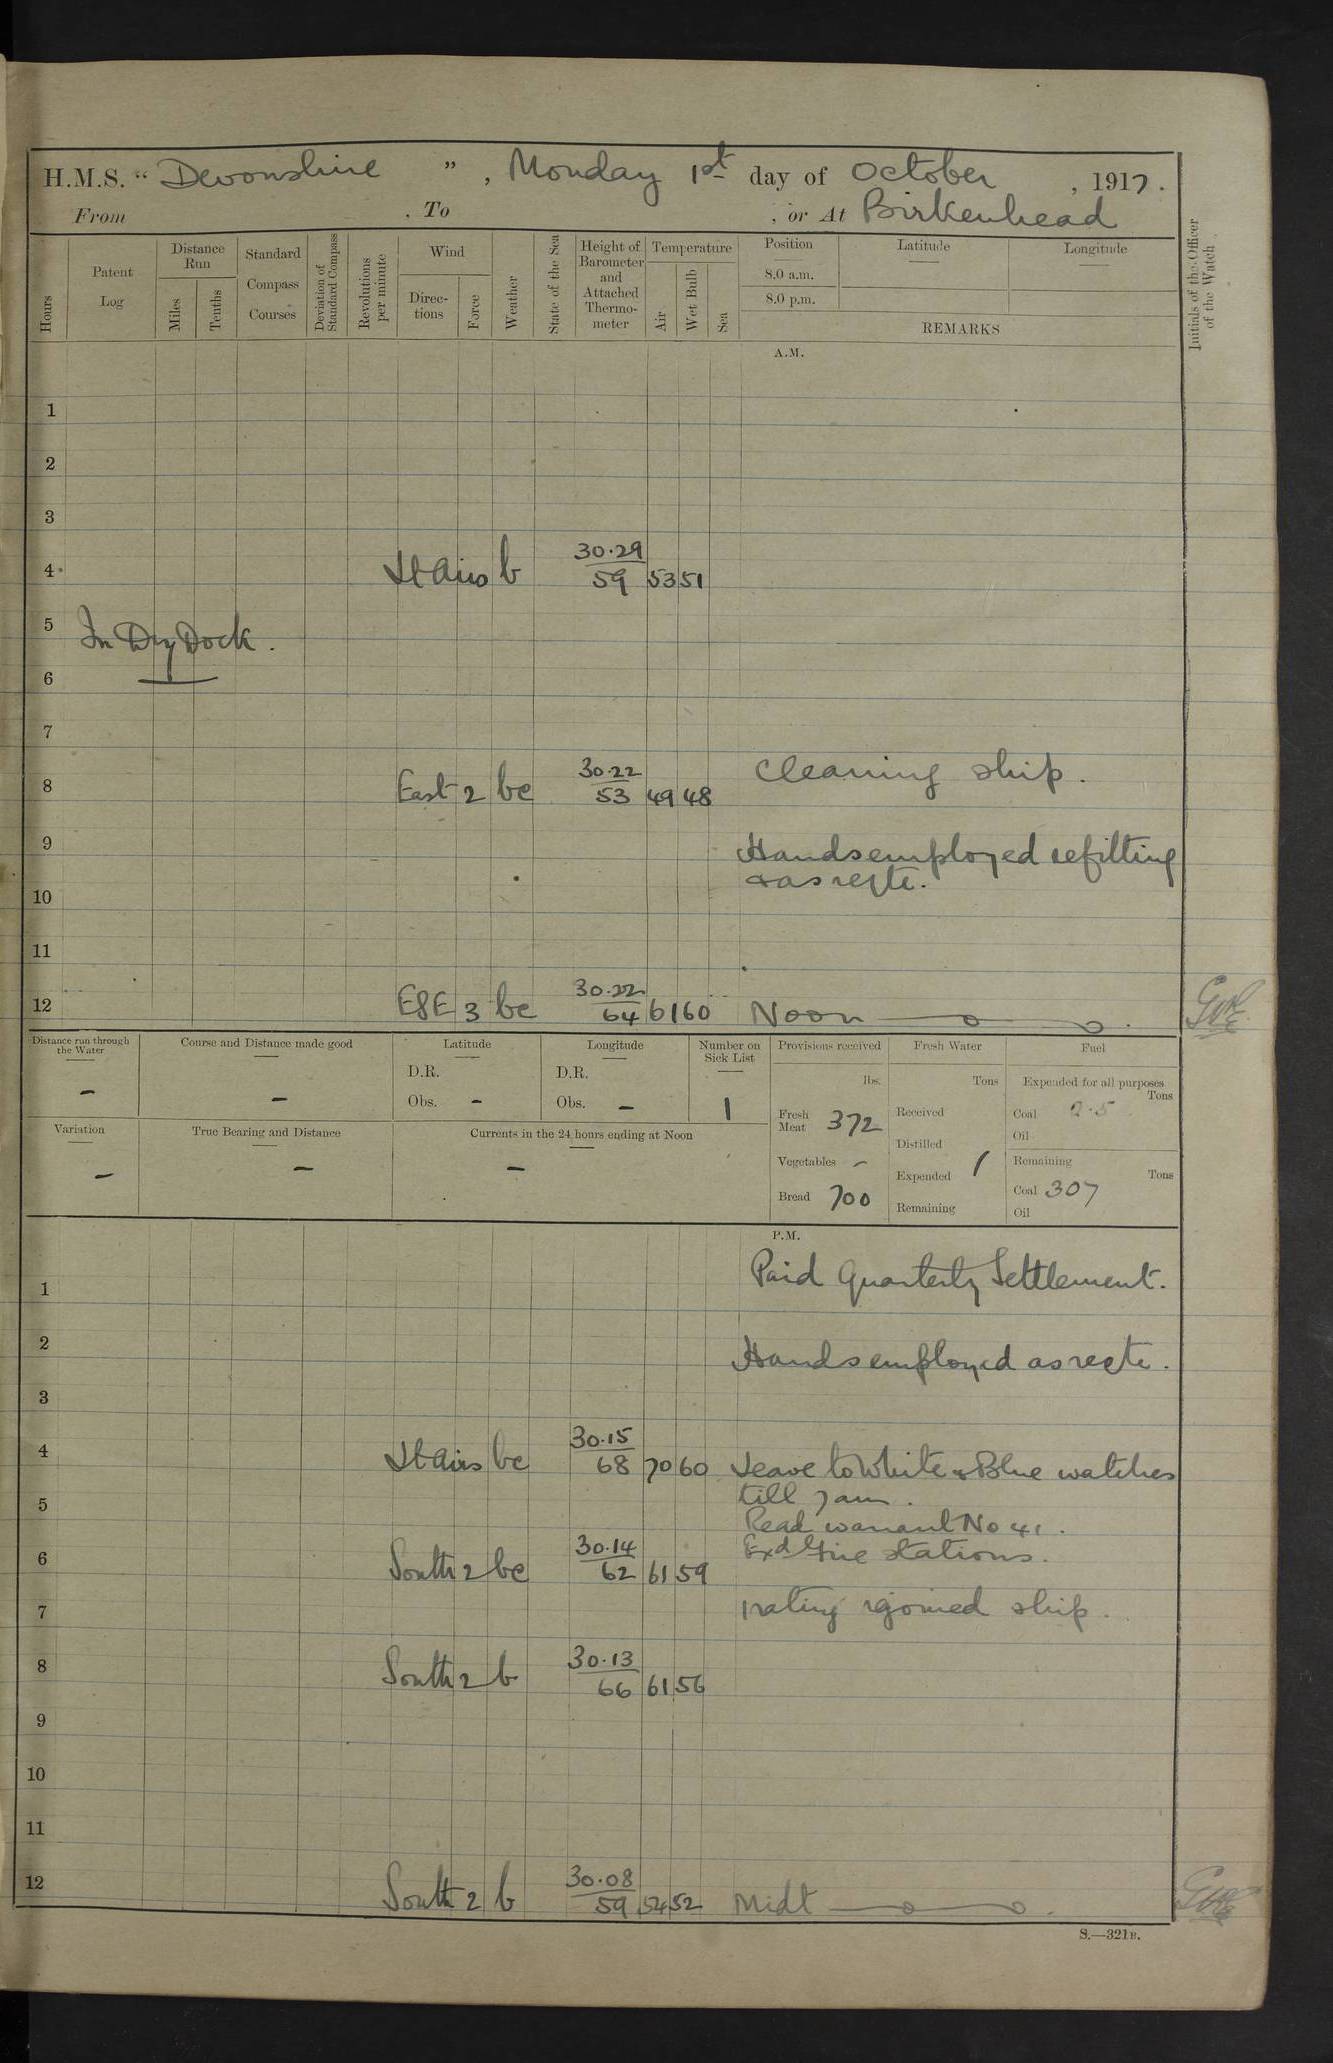 H.M.S. "Devonshire", Monday 1st day of October, 1917.
From , To , or At Birkenhead
Hours
Patent Log
Distance Run
Miles
Tenths
Standard Compass Courses
Deviation of Standard Compass
Revolutions per minute
Wind
Directions
Force
Weather
State of the Sea
Height of Barometer and Attached Thermometer
Temperature
Air
Wet Bulb
Sea
Position
8.0 a.m.
8.0 p.m.
Latitude
Longitude
REMARKS
Initials of the Officer of the Watch
A.M.
1
2
3
4 Lt Airs b 30.29 59 53 51
5 In Dry Dock.
6
7
Cleaning ship.
8 East 2 bc 30.22 53 49 48
9 Hands employed refitting
& as reqte.
10
11
12 ESE 3 bc 30.22 64 61 60 Noon
Distance run through the Water
-
Course and Distance made good
-
Latitude
D.R.
Obs. -
Longitude
D.R.
Obs. -
Number on Sick List
1
Variation
-
True Bearing and Distance
-
Currents in the 24 hours ending at Noon
-
Provisions received
lbs.
Fresh Meat 372
Vegetables -
Bread 700
Fresh Water
Tons
Received
Distilled
Expended 1
Remaining
Fuel
Expended for all purposes
Tons
Coal 2.5
Oil
Remaining
Tons
Coal 307
Oil
P.M.
Paid Quarterly Settlement.
1
2 Hands employed as reqte.
3
4 Lt Airs bc 30.15 68 70 60 Leave to White & Blue watches
till 7am.
5 Read warrant No 41.
Exd Fire stations.
6 South 2 bc 30.14 62 61 59
7 1 rating rejoined ship.
8 South 2 b 30.13 66 61 56
9
10
11
12 South 2 b 30.08 59 54 52 Midt
S.—321B.